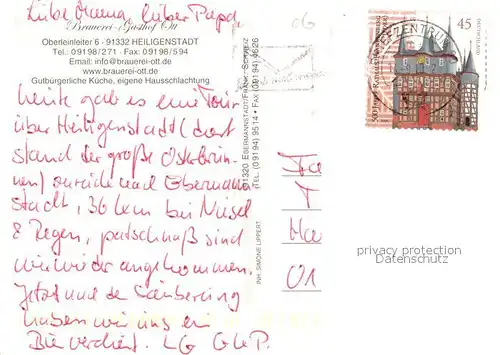 Liebe Mama, lieber Papa,
Brauerei-Gasthof Ott
Oberleinleiter 6 - 91332 HEILIGENSTADT
Tel.: 09198/271 · Fax: 09198/594
Email: info@brauerei-ott.de
www.brauerei-ott.de
Gutbürgerliche Küche, eigene Hausschlachtung
heute gab es eine Tour
über Heiligenstadt (dort
stand der große Osterbrun-
nen) zurück nach Ebermann-
stadt, 36 km bei Niesel
& Regen, patschnaß sind
wir wieder angekommen.
Jetzt nach der Säuberung
haben wir uns ein
Bier verdient. LG G+P.
INH. SIMONE LIPPERT
91320 EBERMANNSTADT/FRÄNK. SCHWEIZ
TEL. (09194) 9514 • FAX (09194) 4626
BRIEFZENTRUM
45
500 Jahre Rathaus
DEUTSCHLAND
06
Fa
T
Ha
01
privacy protection
Datenschutz